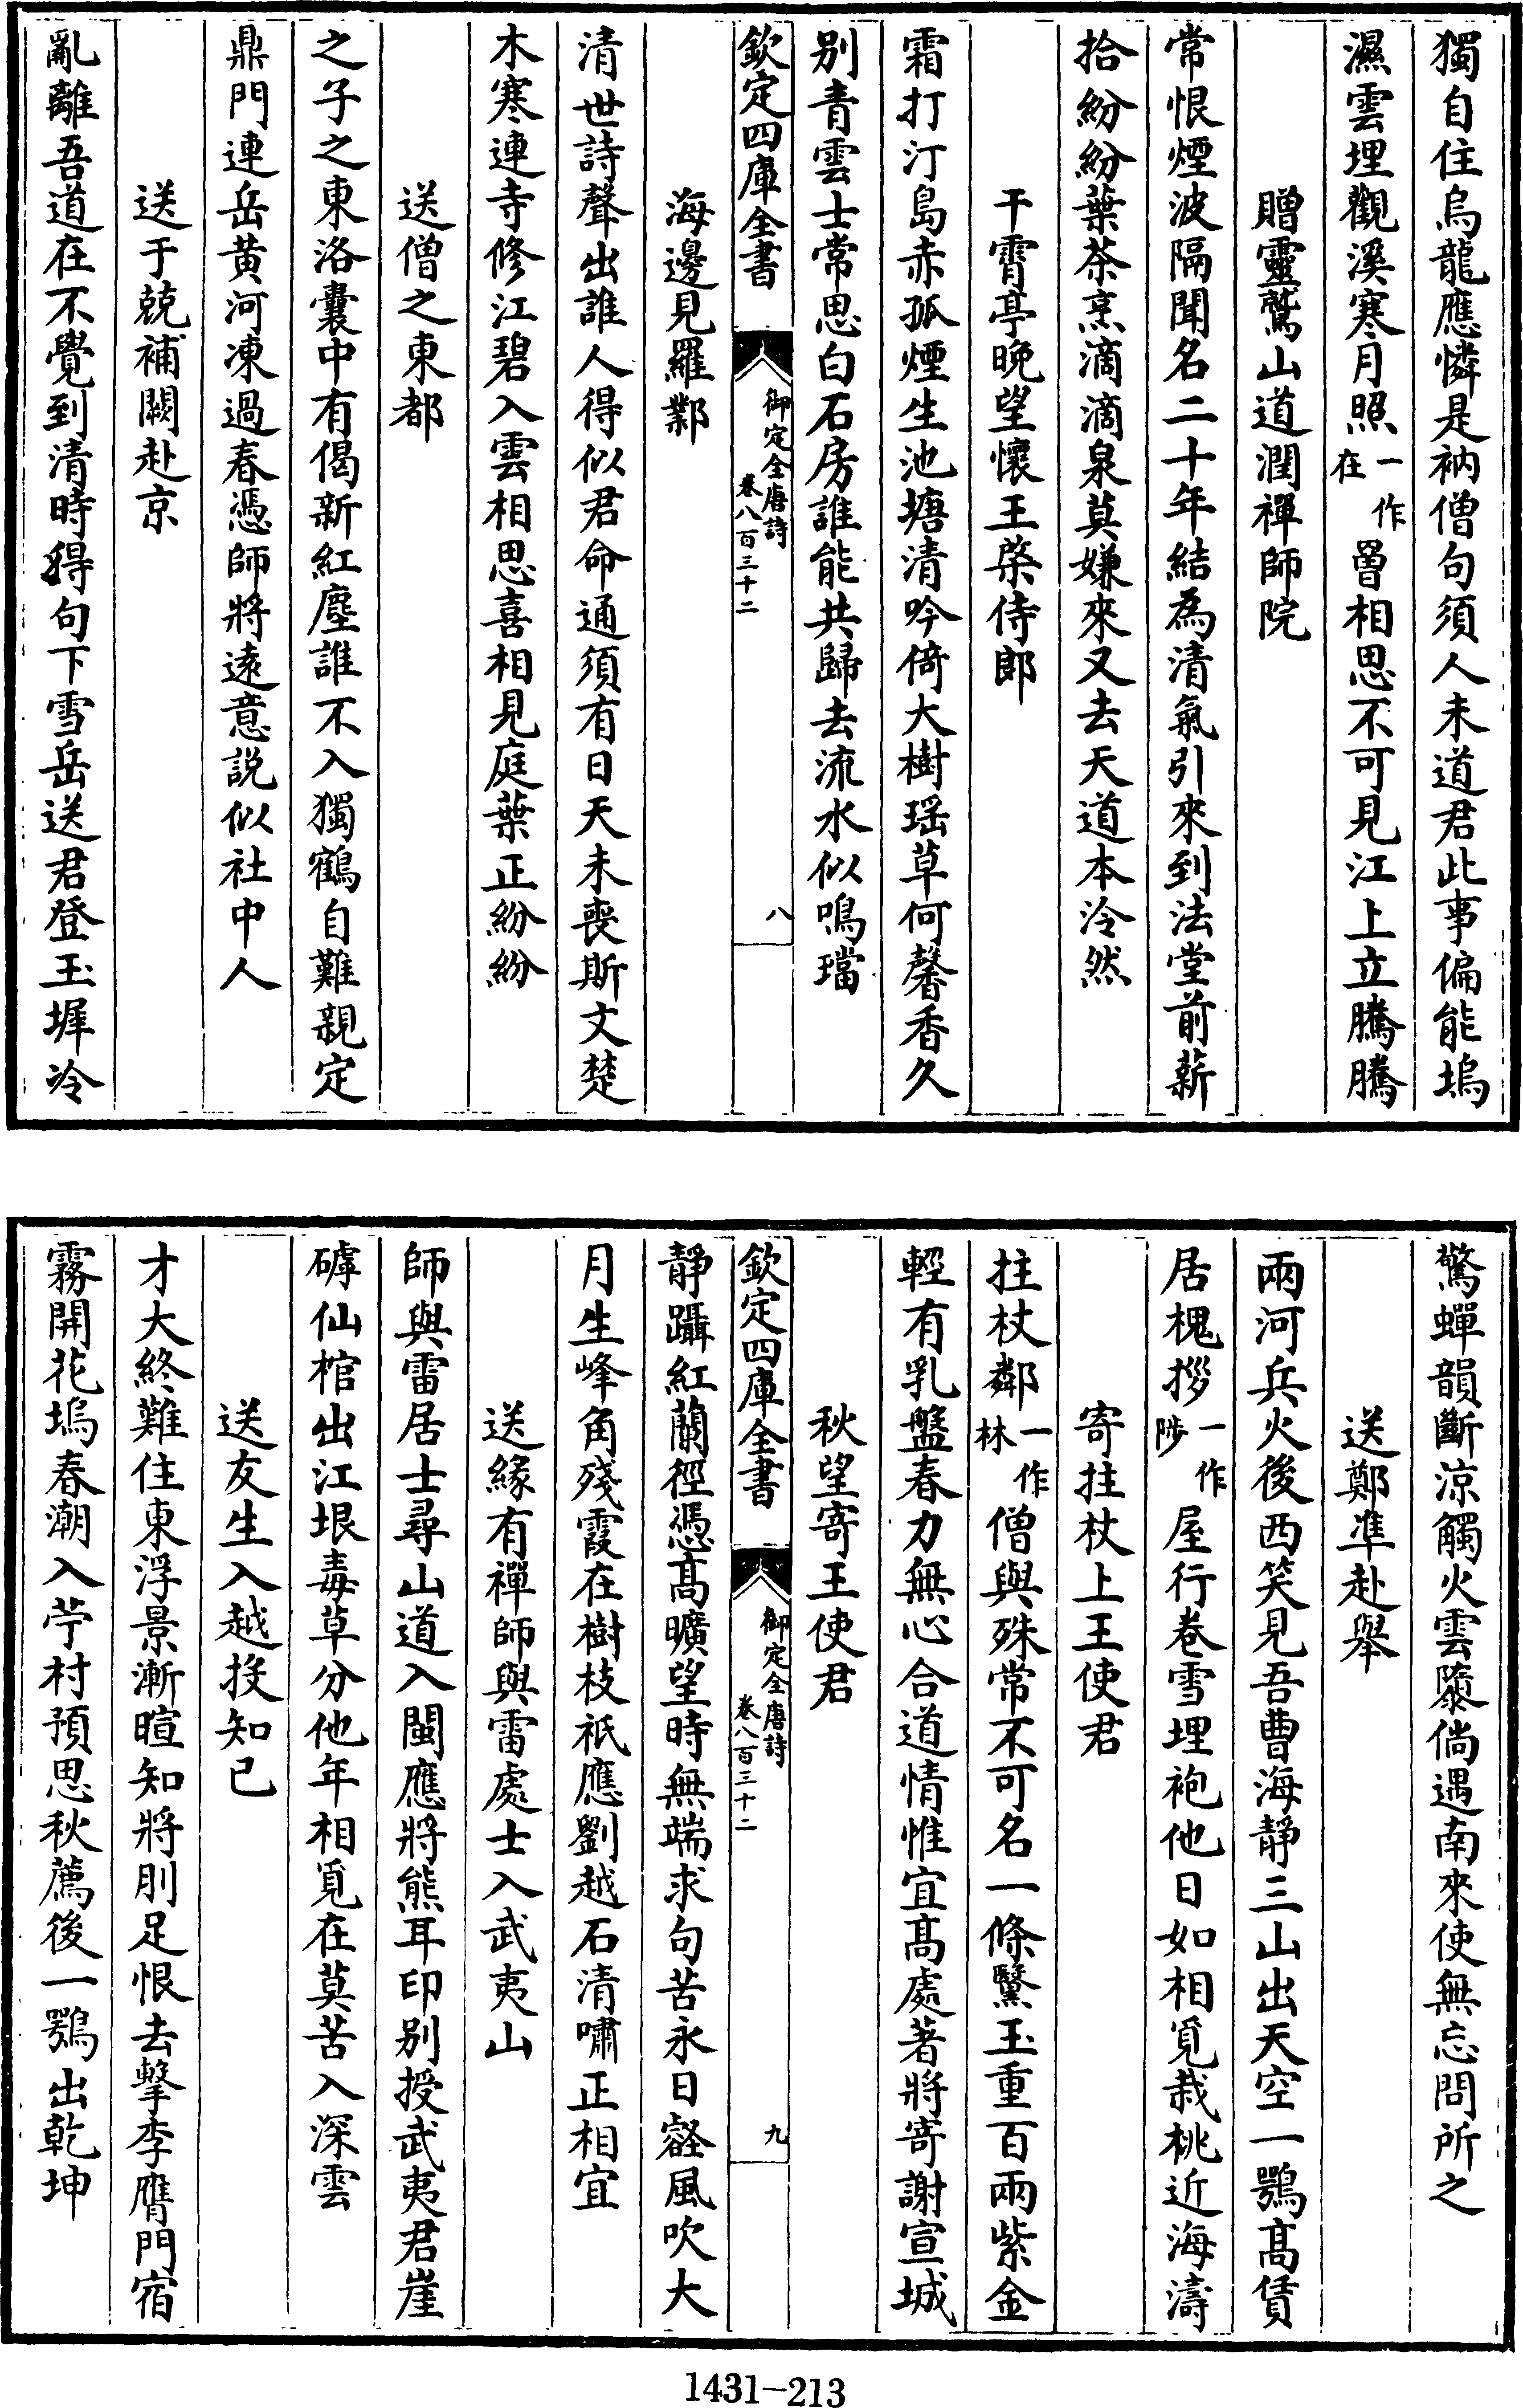 獨自住烏龍應憐是衲僧句須人未道君此事偏能塢
濕雲埋觀溪寒月照一作在罾相思不可見江上立騰騰
贈靈鷲山道潤禪師院
常恨煙波隔聞名二十年結為清氣引來到法堂前薪
拾紛紛葉茶烹滴滴泉莫嫌來又去天道本泠然
干霄亭晚望懷王棨侍郎
霜打汀島赤孤煙生池塘清吟倚大樹瑶草何馨香久
别青雲士常思白石房誰能共歸去流水似鳴璫
欽定四庫全書
御定全唐詩
卷八百三十二
八
海邊見羅鄴
清世詩聲出誰人得似君命通須有日天未喪斯文楚
木寒連寺修江碧入雲相思喜相見庭葉正紛紛
送僧之東都
之子之東洛囊中有偈新紅塵誰不入獨鶴自難親定
鼎門連岳黄河凍過春憑師將遠意説似社中人
送于兢補闕赴京
亂離吾道在不覺到清時得句下雪岳送君登玉墀冷
驚蟬韻斷涼觸火雲隳倘遇南來使無忘問所之
送鄭凖赴舉
兩河兵火後西笑見吾曹海靜三山出天空一鶚高賃
居槐拶一作陟屋行卷雪埋袍他日如相覓栽桃近海濤
寄拄杖上王使君
拄杖鄰一作林僧與殊常不可名一條黳玉重百兩紫金
輕有乳盤春力無心合道情惟宜高處著將寄謝宣城
秋望寄王使君
欽定四庫全書
御定全唐詩
卷八百三十二
九
靜躡紅蘭徑憑高曠望時無端求句苦永日壑風吹大
月生峰角殘霞在樹枝祇應劉越石清嘯正相宜
送緣有禪師與雷處士入武夷山
師與雷居士尋山道入閩應將熊耳印别授武夷君崖
罅仙棺出江垠毒草分他年相覓在莫苦入深雲
送友生入越投知己
才大終難住東浮景漸暄知將刖足恨去擊李膺門宿
霧開花塢春潮入苧村預思秋薦後一鶚出乾坤
1431-213